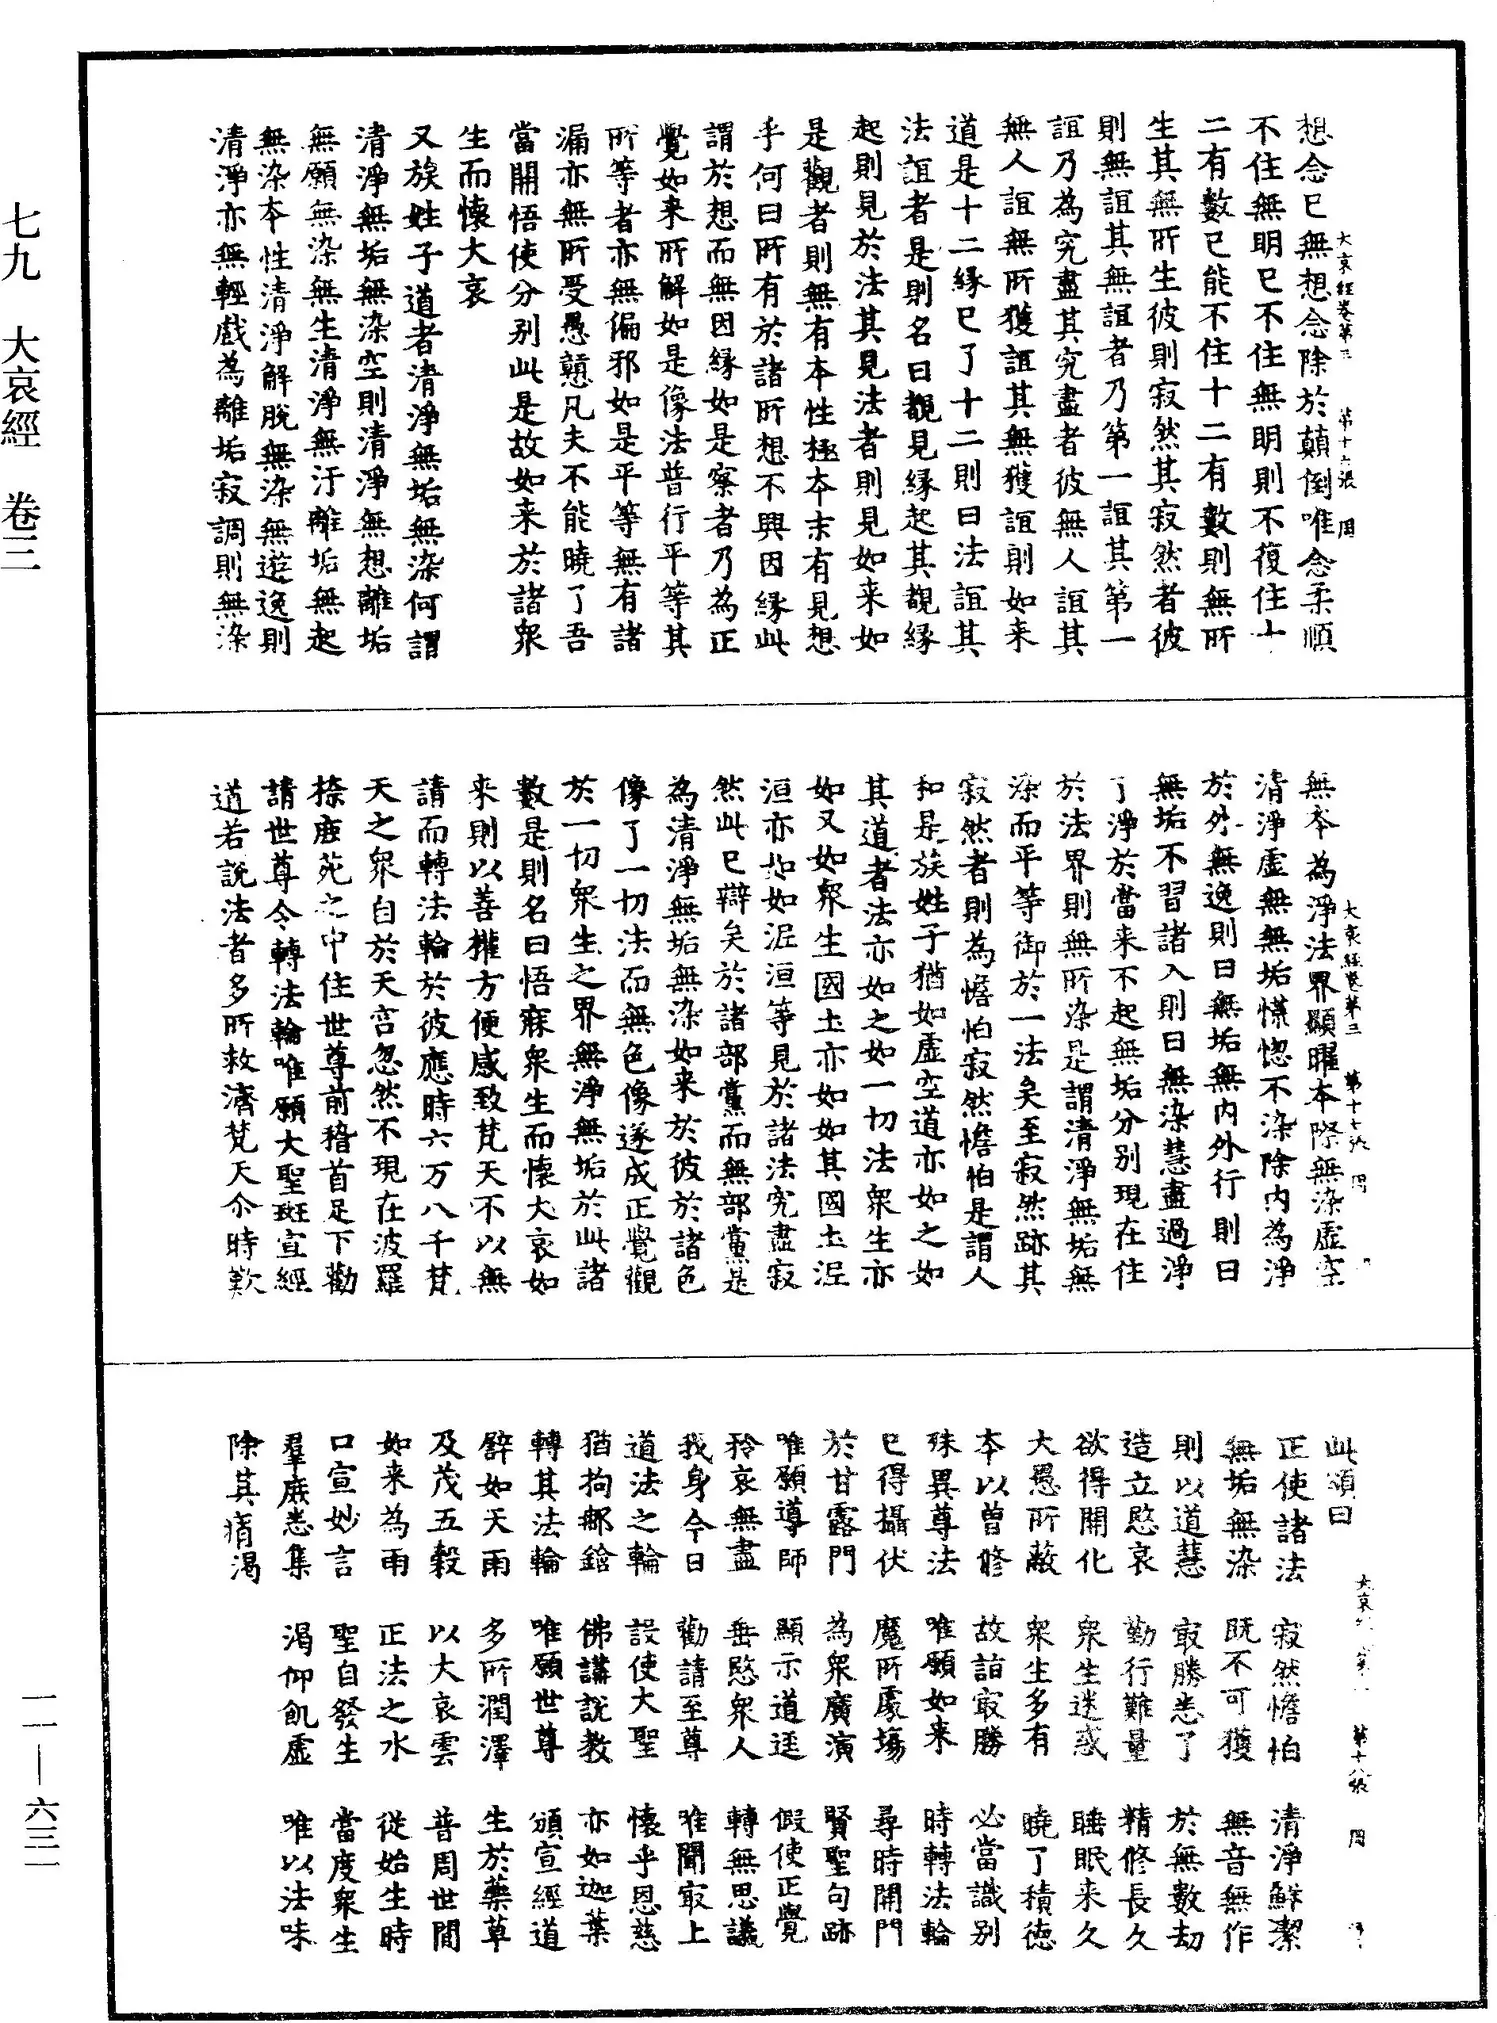 大哀經卷第三　第十六張　周
想念已無想念除於顛倒唯念柔順
不住無明已不住無明則不復住十
二有數已能不住十二有數則無所
生其無所生彼則寂然其寂然者彼
則無誼其無誼者乃第一誼其第一
誼乃為究盡其究盡者彼無人誼其
無人誼無所獲誼其無獲誼則如来
道是十二緣已了十二則曰法誼其
法誼者是則名曰覩見緣起其覩緣
起則見於法其見法者則見如来如
是觀者則無有本性極本末有見想
乎何曰所有於諸所想不興因緣此
謂於想而無因緣如是察者乃為正
覺如来所解如是像法普行平等其
所等者亦無偏邪如是平等無有諸
漏亦無所受愚戇凡夫不能曉了吾
當開悟使分别此是故如来於諸衆
生而懷大哀
又族姓子道者清淨無垢無染何謂
清淨無垢無染空則清淨無想離垢
無願無染無生清淨無汙離垢無起
無染本性清淨解脫無染無遊逸則
清淨亦無輕戲為離垢寂調則無染
大哀經卷第三　第十七張　周
無本為淨法界顯曜本際無染虛空
清淨虛無無垢慌惚不染除內為淨
於外無逸則曰無垢無內外行則曰
無垢不習諸入則曰無染慧盡過淨
了淨於當来不起無垢分别現在住
於法界則無所染是謂清淨無垢無
染而平等御於一法矣至寂然跡其
寂然者則為憺怕寂然憺怕是謂人
和是族姓子猶如虛空道亦如之如
其道者法亦如之如一切法衆生亦
如又如衆生國土亦如如其國土泥
洹亦如如泥洹等見於諸法究盡寂
然此已辯矣於諸部黨而無部黨是
為清淨無垢無染如来於彼於諸色
像了一切法而無色像遂成正覺觀
於一切衆生之界無淨無垢於此諸
數是則名曰悟寐衆生而懷大哀如
来則以善權方便感致梵天不以無
請而轉法輪於彼應時六万八千梵
天之衆自於天宫忽然不現在波羅
㮈鹿苑之中住世尊前稽首足下勸
請世尊令轉法輪唯願大聖班宣經
道若說法者多所救濟梵天尒時歎
大哀　第十八張　周
此頌曰
正使諸法　寂然憺怕　清淨鮮潔
無垢無染　既不可獲　無音無作
則以道慧　冣勝悉了　於無數劫
造立愍哀　勤行難量　精修長久
欲得開化　衆生迷惑　睡眠来久
大愚所蔽　衆生多有　曉了積德
本以曽修　故詣冣勝　必當識别
殊異尊法　唯願如来　時轉法輪
已得攝伏　魔所處場　尋時開門
於甘露門　為衆廣演　賢聖句跡
唯願導師　顯示道逕　假使正覺
矜哀無盡　垂愍衆人　轉無思議
我身今日　勸請至尊　唯聞冣上
道法之輪　設使大聖　懷乎恩慈
猶拘那鋡　佛講說教　亦如迦葉
轉其法輪　唯願世尊　頒宣經道
辟如天雨　多所潤澤　生於藥草
及茂五穀　以大哀雲　普周世間
如来為雨　正法之水　從始生時
口宣妙言　聖自發生　當度衆生
羣庶悉集　渴仰飢虛　唯以法味
除其痟渴
七九　大哀經　卷三
一一—六三一